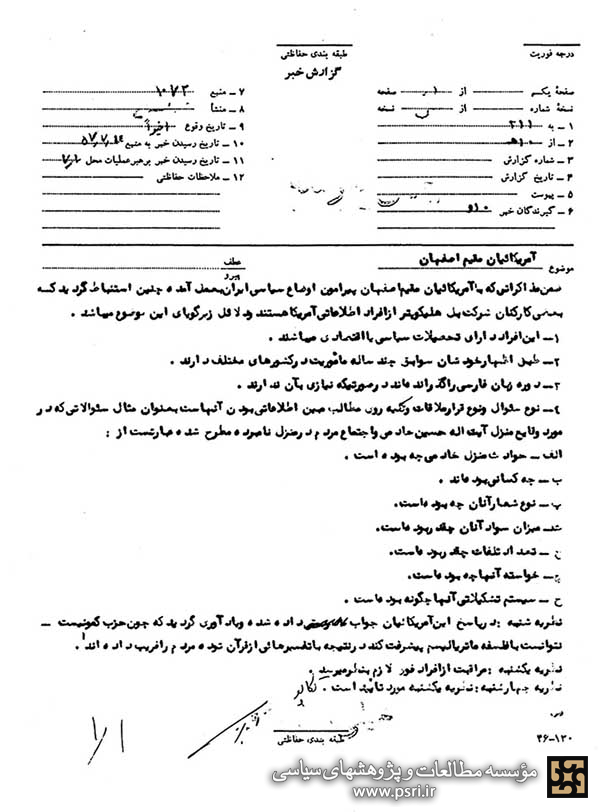 درجه فوریت
طبقه بندی حفاظتی
گزارش خبر
صفحهٔ یکم از ۱ صفحه
نسخهٔ شماره از نسخه
۱ – به ۳۱۱
۲ – از ۱۰ه‍
۳ – شماره گزارش
۴ – تاریخ گزارش
۵ – پیوست
۶ – گیرندگان خبر
۷ – منبع ۱۰۷۲
۸ – منشأ
۹ – تاریخ وقوع اخیراً
۱۰ – تاریخ رسیدن خبر به منبع
۱۱ – تاریخ رسیدن خبر برهبرعملیات محل
۱۲ – ملاحظات حفاظتی
موضوع آمریکائیان مقیم اصفهان
عطف
پیرو
ضمن مذاکراتی که با آمریکائیان مقیم اصفهان پیرامون اوضاع سیاسی ایران بعمل آمده چنین استنباط گردید که
بعضی کارکنان شرکت بل هلیکوپتر از افراد اطلاعاتی آمریکا هستند و دلائل زیر گویای این موضوع میباشد .
۱– این افراد دارای تحصیلات سیاسی یا اقتصادی میباشند .
۲– طبق اظهار خودشان سوابق چند ساله مأموریت در کشورهای مختلف دارند .
۳– دوره زبان فارسی را گذرانده‌اند در صورتیکه نیازی بآن ندارند .
٤– نوع سئوال و نوع قرار ملاقات و تکیه روی مطالب مبین اطلاعاتی بودن آنهاست بعنوان مثال سئوالاتی که در
مورد وقایع منزل آیت اله حسین خادمی و اجتماع مردم در منزل نامبرده مطرح شده عبارتست از :
الف – حوادث منزل خادمی چه بوده است .
ب – چه کسانی بوده‌اند .
پ – نوع شعار آنان چه بوده است.
ث – میزان سواد آنان چقدر بوده است.
ج – تعداد تلفات چقدر بوده است.
چ – خواسته آنها چه بوده است.
ح – سیستم تشکیلاتی آنها چگونه بوده است.
نظریه شنبه : در پاسخ این آمریکائیان جواب داده شده و یادآوری گردید که چون حزب کمونیست –
نتوانست با فلسفه ماتریالیسم پیشرفت کند در نتیجه با تفسیرهائی از قرآن توده مردم را فریب داده‌اند .
نظریه یکشنبه : مراقبت از افراد فوق لازم بنظر میرسد .
نظریه چهارشنبه : نظریه یکشنبه مورد تأیید است .
طبقه بندی حفاظتی
۴۶–۱۲۰
مؤسسه مطالعات و پژوهشهای سیاسی
www.psri.ir